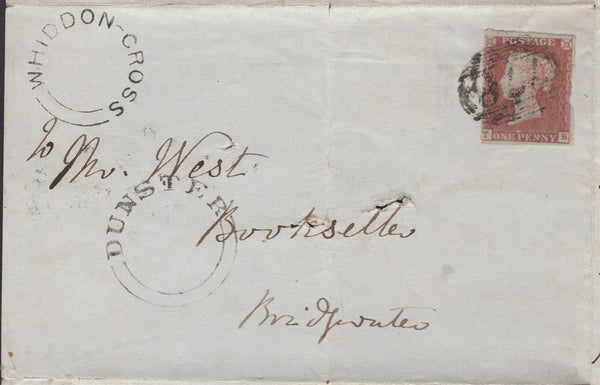 WHIDDON-CROSS
POSTAGE
ONE PENNY
To Mr. West
DUNSTER
Bookseller
Bridgwater